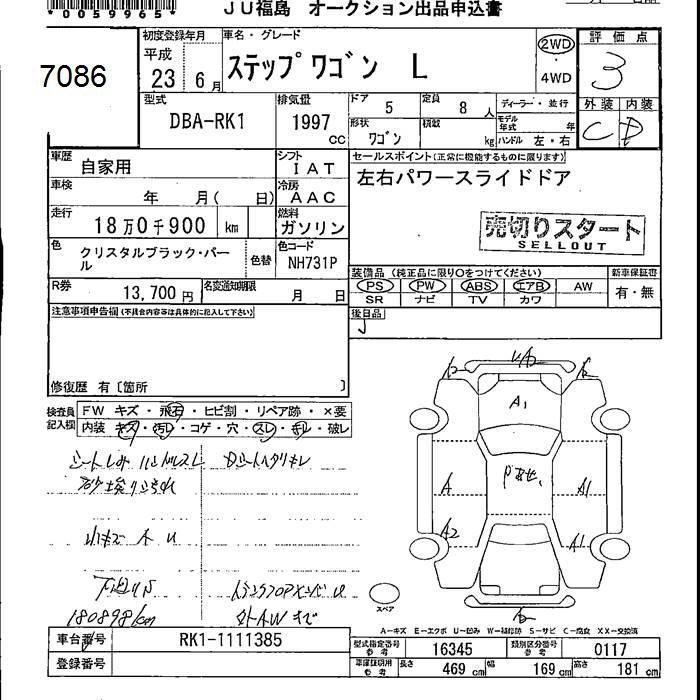 *0059965*
JU福島 オークション出品申込書
7086
初度登録年月
平成
23 6月
車名・グレード
ステップワゴン L
2WD
4WD
評価点
3
外装 内装
C D
型式
DBA-RK1
排気量
1997
cc
ドア
5
定員
8 人
ディーラー・並行
形状
ワゴン
積載
kg
モデル年式 年
ハンドル 左・右
車歴
自家用
シフト
IAT
セールスポイント(正常に機能するものに限ります)
左右パワースライドドア
車検
年 月( 日)
冷房
AAC
走行
18万0千900 km
燃料
ガソリン
売切りスタート
SELLOUT
色
クリスタルブラック・パール
色替
色コード
NH731P
装備品(純正品に限り○をつけてください)
新車保証書
PS PW ABS エアB AW
SR ナビ TV カワ
有・無
R券
13,700円
名変通知期限
月 日
後日品
注意事項申告欄(不具合内容等は具体的に記入して下さい)
修復歴 有〔箇所 〕
検査員記入欄
FW キズ・飛石・ヒビ割・リペア跡・×要
内装 キズ・汚レ・コゲ・穴・スレ・キレ・破レ
シートしみ ハンドルスレ Dシートヘタリキレ
小キズ
下廻りS
180898km
A1
A
A2
A1
A1
スペア
A-キズ E-エクボ U-凹み W-補修跡 S-サビ C-腐食 XX-交換済
車台番号
RK1-1111385
登録番号
型式指定番号 参考
16345
類別区分番号 参考
0117
車庫証明用 参考
長さ 469 cm
幅 169 cm
高さ 181 cm